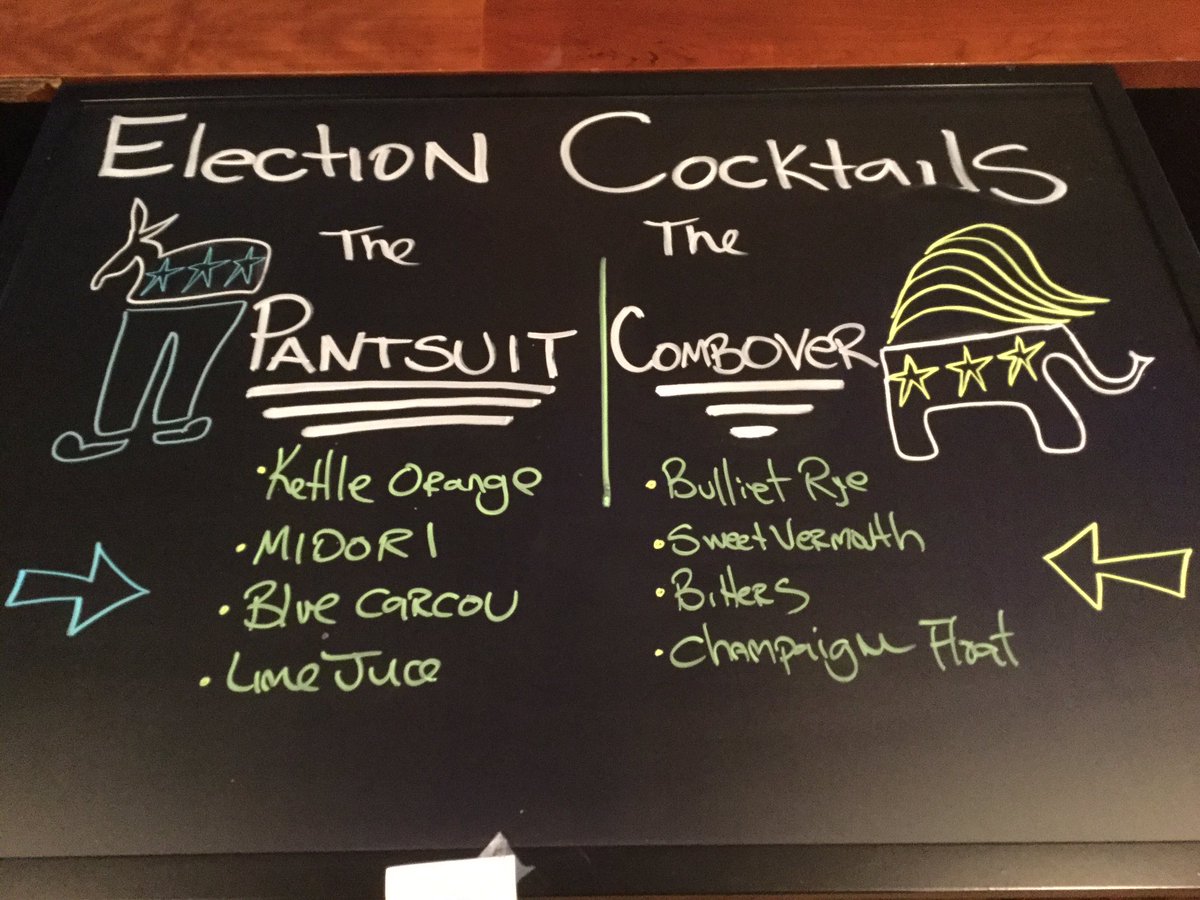 Election Cocktails
The
PANTSUIT
• Kettle Orange
• MIDORI
• Blue CARCOU
• Lime Juce
The
COMBOVER
• Bulliet Rye
• Sweet Vermouth
• Bitters
• Champaigne Float